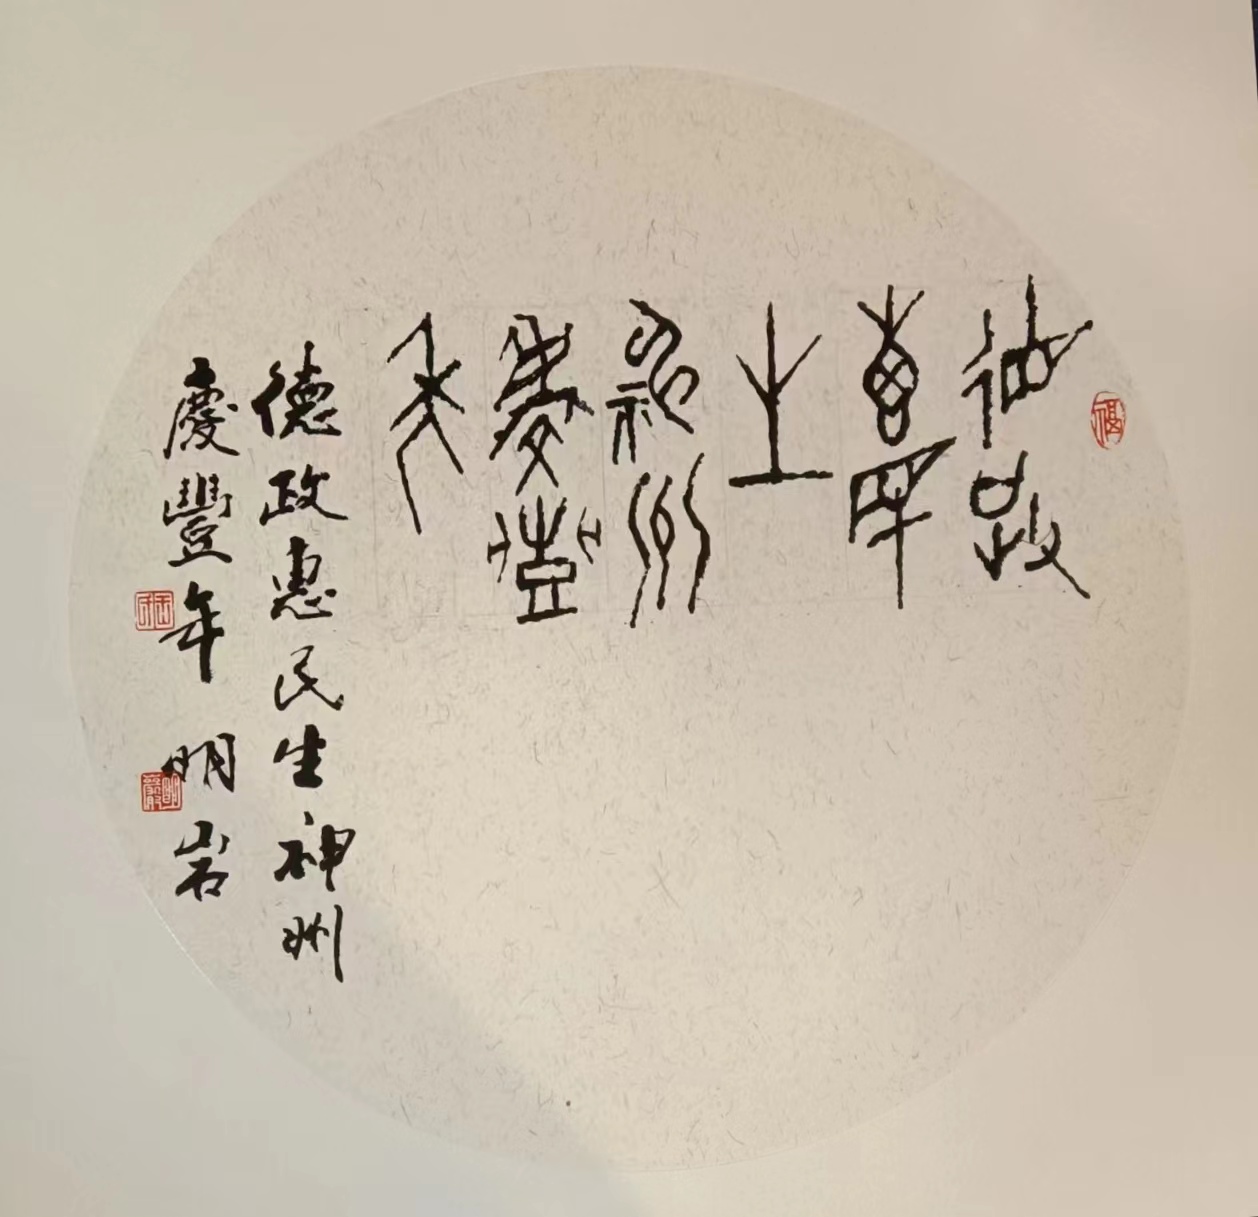 德政
惠民
生
神州
慶豐
年
德政惠民生神州
慶豐年 明岩